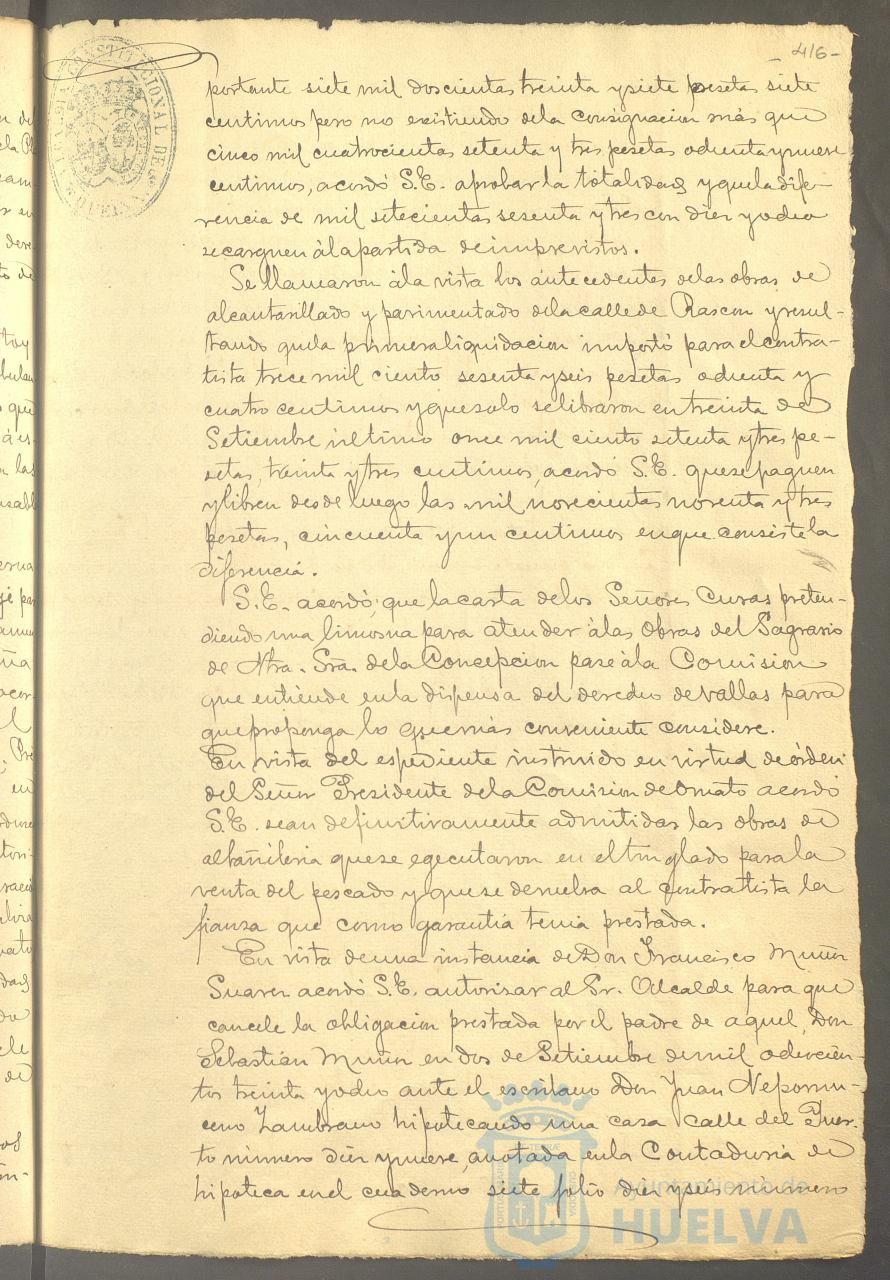 -416-
ALCALDIA CONSTITUCIONAL DE HUELVA
portante siete mil doscientas treinta y siete pesetas siete
centimos pero no existiendo dela consignacion más que
cinco mil cuatrocientas setenta y tres pesetas ochenta y nueve
centimos, acordó S.E. aprobar la totalidad y que la dife-
rencia de mil setecientas sesenta y tres con diez y ocho
se carguen á la partida de imprevistos.
Se llamaron á la vista los antecedentes delas obras de
alcantarillado y pavimentado dela calle de Rascon y resul-
tando que la primera liquidacion importó para el contra-
tista trece mil ciento sesenta y seis pesetas ochenta y
cuatro centimos y que solo se libraron en treinta de
Setiembre último once mil ciento setenta y tres pe-
setas, treinta y tres centimos, acordó S.E. que se paguen
y libren desde luego las mil novecientas noventa y tres
pesetas, cincuenta y un centimos en que consiste la
diferencia.
S.E. acordó, que la carta delos Señores Curas preten-
diendo una limosna para atender á las Obras del Sagrario
de Ntra. Sra. dela Concepcion pase á la Comision
que entiende en la dispensa del derecho de vallas para
que proponga lo que más conveniente considere.
En vista del espediente instruido en virtud de órden
del Señor Presidente dela Comision de Ornato acordó
S.E. sean definitivamente admitidas las obras de
albañileria que se egecutaron en el tinglado para la
venta del pescado y que se devuelva al contratista la
fianza que como garantia tenia prestada.
En vista de una instancia de Don Francisco Muñiz
Suarez acordó S.E. autorizar al Sr. Alcalde para que
cancele la obligacion prestada por el padre de aquel, Don
Sebastián Muñiz en dos de Setiembre de mil ochocien-
tos treinta y ocho ante el escribano Don Juan Nepomu-
ceno Zambrano hipotecando una casa calle del Puer-
to número diez y nueve, anotada en la Contaduria de
hipoteca en el cuaderno siete folio diez y seis número
Ayuntamiento de
HUELVA